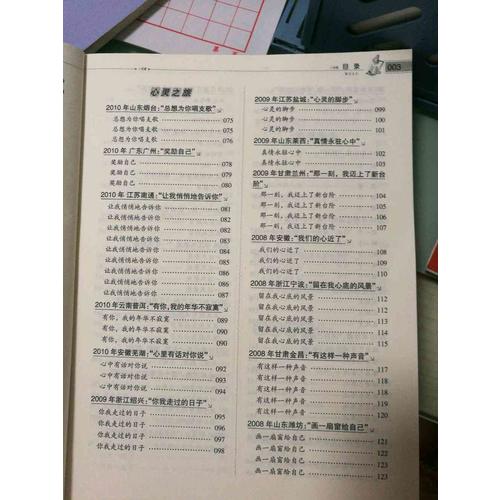 目录
003
心灵之旅
2010年山东烟台:“总想为你唱支歌”
总想为你唱支歌 075
总想为你唱支歌 075
总想为你唱支歌 076
2010年广东广州:“奖励自己”
奖励自己 078
奖励自己 079
奖励自己 080
2010年江苏南通:“让我悄悄地告诉你”
让我悄悄地告诉你 081
让我悄悄地告诉你 082
让我悄悄地告诉你 083
让我悄悄地告诉你 084
让我悄悄地告诉你 085
让我悄悄地告诉你 086
让我悄悄地告诉你 087
2010年云南普洱:“有你,我的年华不寂寞”
有你,我的年华不寂寞 089
有你,我的年华不寂寞 090
有你,我的年华不寂寞 090
2010年安徽芜湖:“心里有话对你说”
心中有话对你说 092
心中有话对你说 093
心中有话对你说 094
2009年浙江绍兴:“你我走过的日子”
你我走过的日子 095
你我走过的日子 096
你我走过的日子 097
你我走过的日子 098
2009年江苏盐城:“心灵的脚步”
心灵的脚步 099
心灵的脚步 100
心灵的脚步 101
2009年山东莱西:“真情永驻心中”
真情永驻心中 102
真情永驻心中 103
2009年甘肃兰州:“那一刻,我迈上了新台
阶”
那一刻,我迈上了新台阶 104
那一刻,我迈上了新台阶 105
那一刻,我迈上了新台阶 106
那一刻,我迈上了新台阶 107
2008年安徽:“我们的心近了”
我们的心近了 108
我们的心近了 109
我们的心近了 110
2008年浙江宁波:“留在我心底的风景”
留在我心底的风景 112
留在我心底的风景 113
留在我心底的风景 114
留在我心底的风景 115
2008年甘肃金昌:“有这样一种声音”
有这样一种声音 117
有这样一种声音 118
有这样一种声音 119
有这样一种声音 120
有这样一种声音 120
2008年山东潍坊:“画一扇窗给自己”
画一扇窗给自己 121
画一扇窗给自己 122
画一扇窗给自己 123